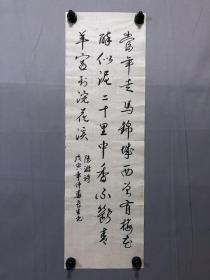 當年走馬錦城西曾為梅花
醉似泥二十里中香不斷青
羊宮到浣花溪
陸游詩
戊寅年仲春